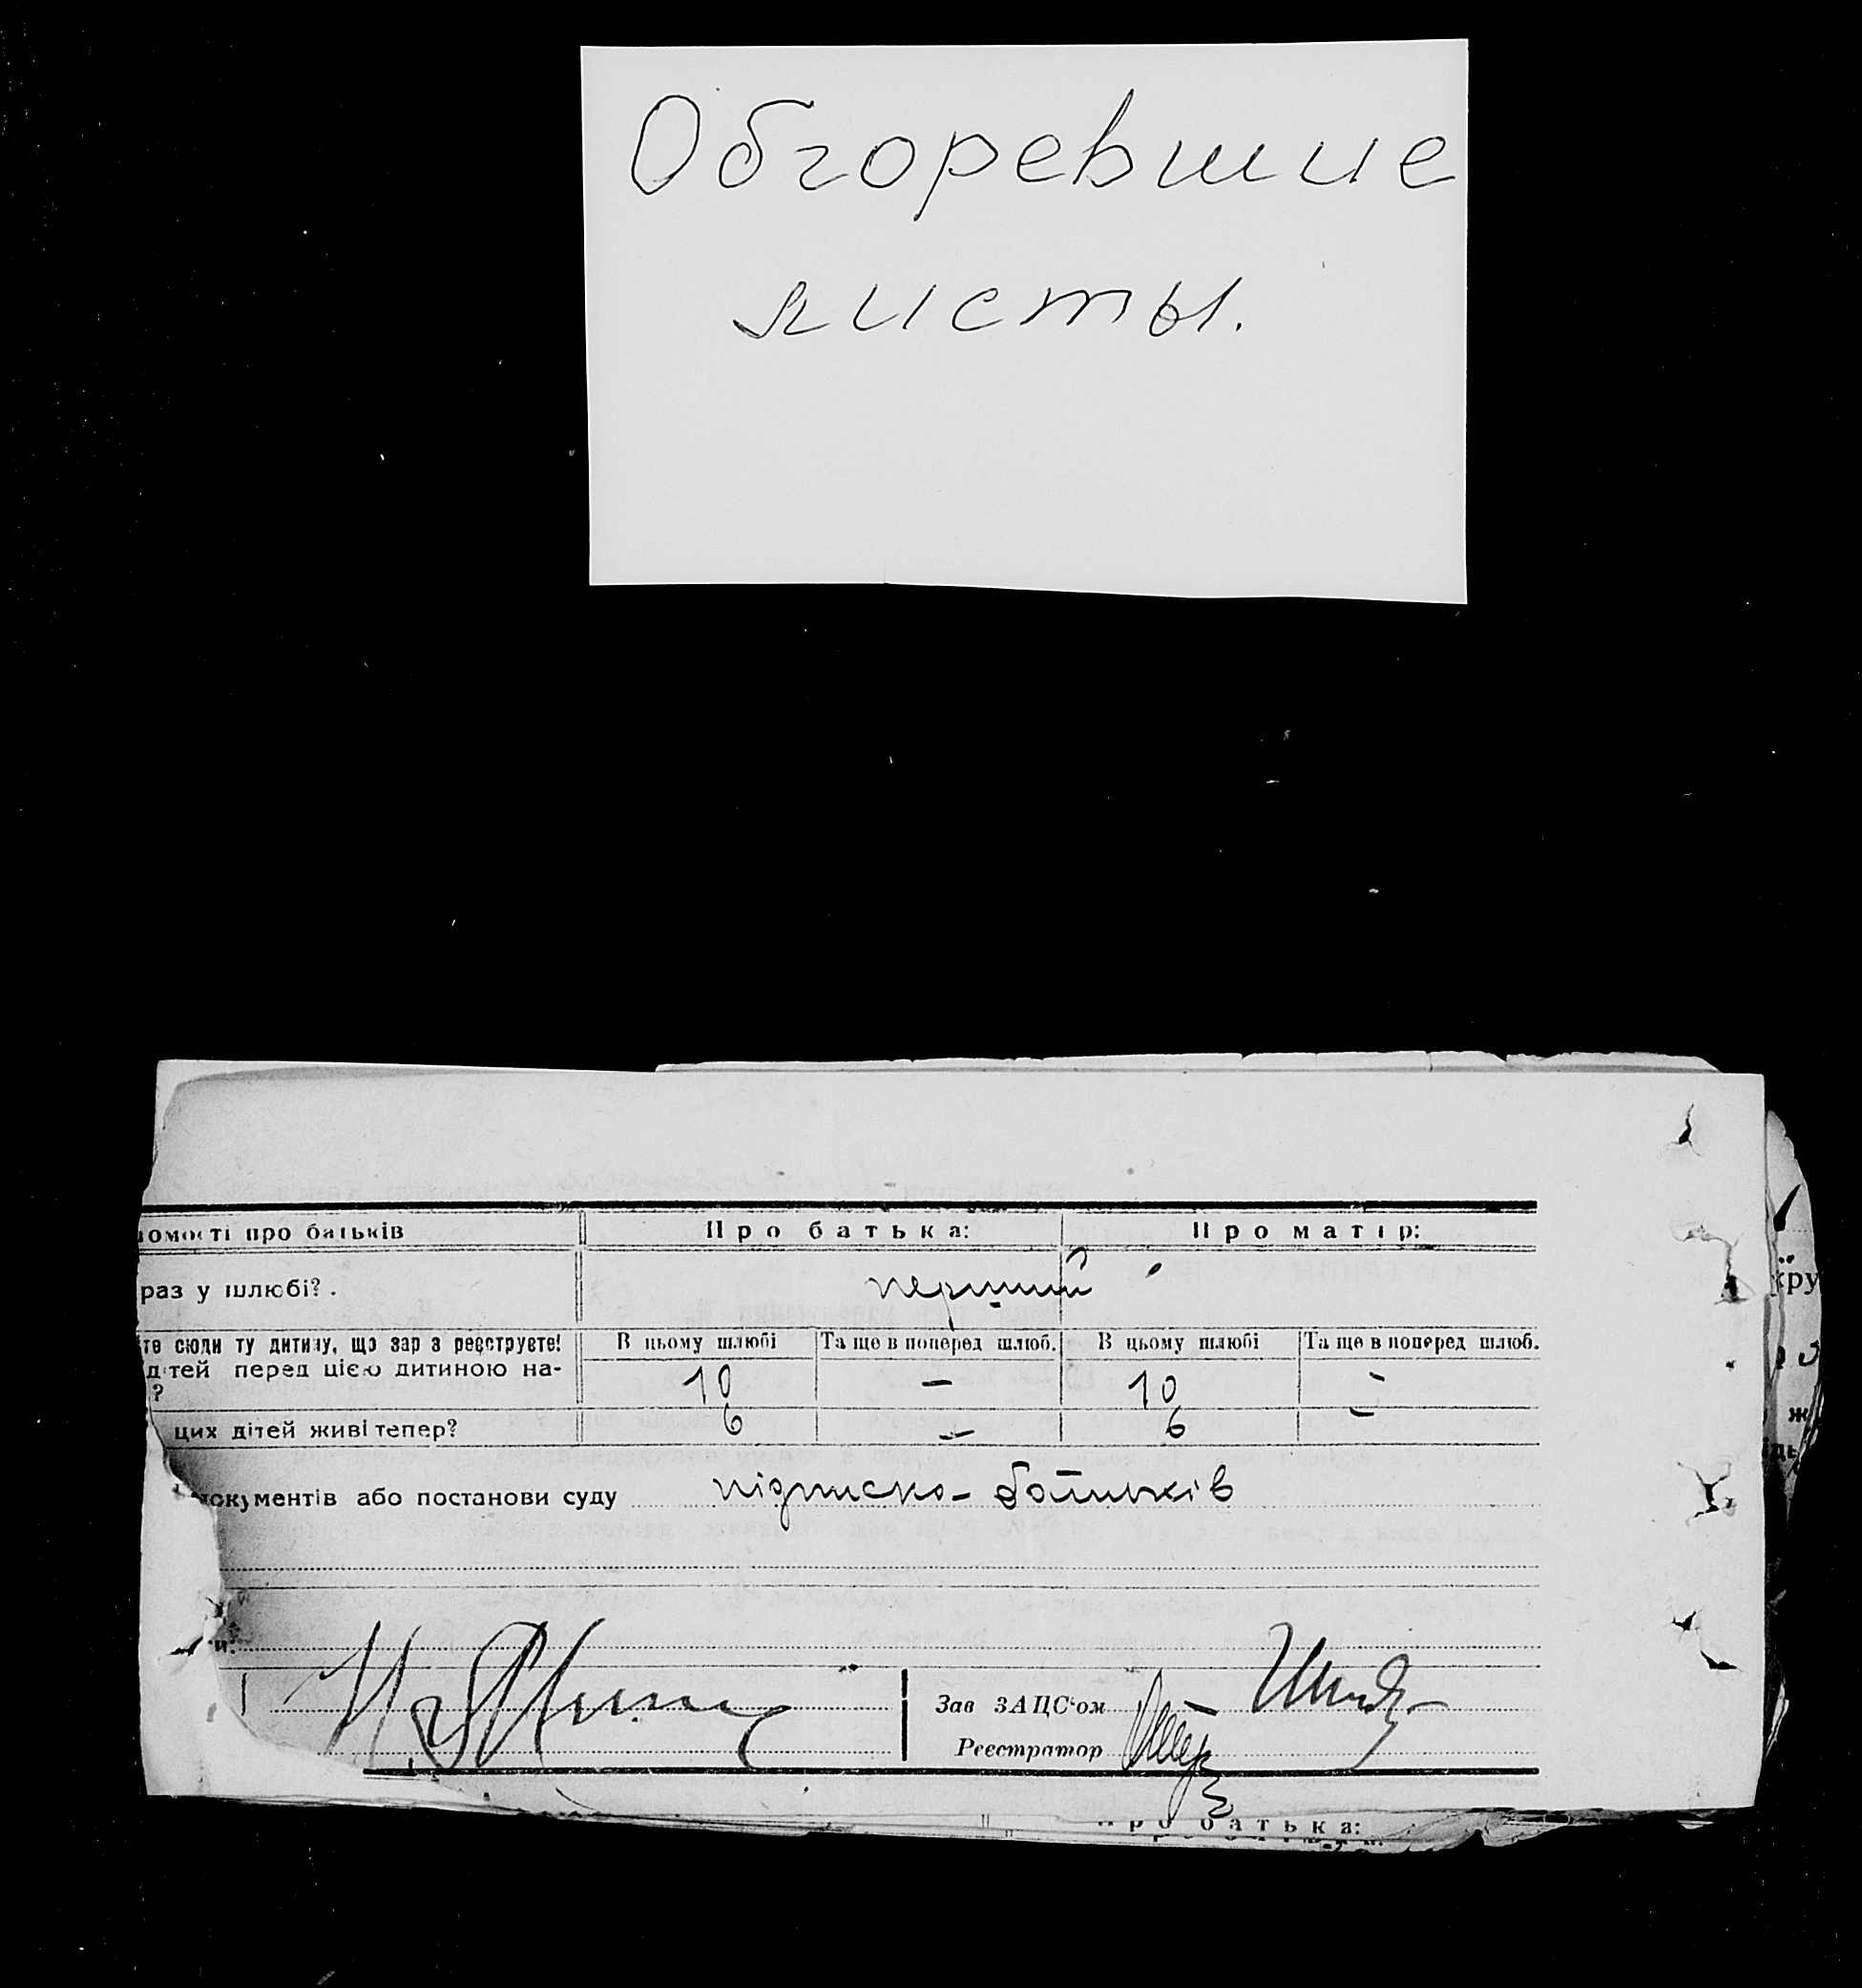 Обгоревшие
листы.
омості про батьків Про батька: Про матір:
раз у шлюбі? . перший
те сюди ту дитину, що зараз реєструєте! В цьому шлюбі Та ще в поперед шлюб. В цьому шлюбі Та ще в поперед шлюб.
дітей перед цією дитиною на- 10 — 10 -
?
цих дітей живі тепер? 6 — 6 —
документів або постанови суду підписка батьків
и:
Зав ЗАЦС‘ом
Реєстратор
Про батька: